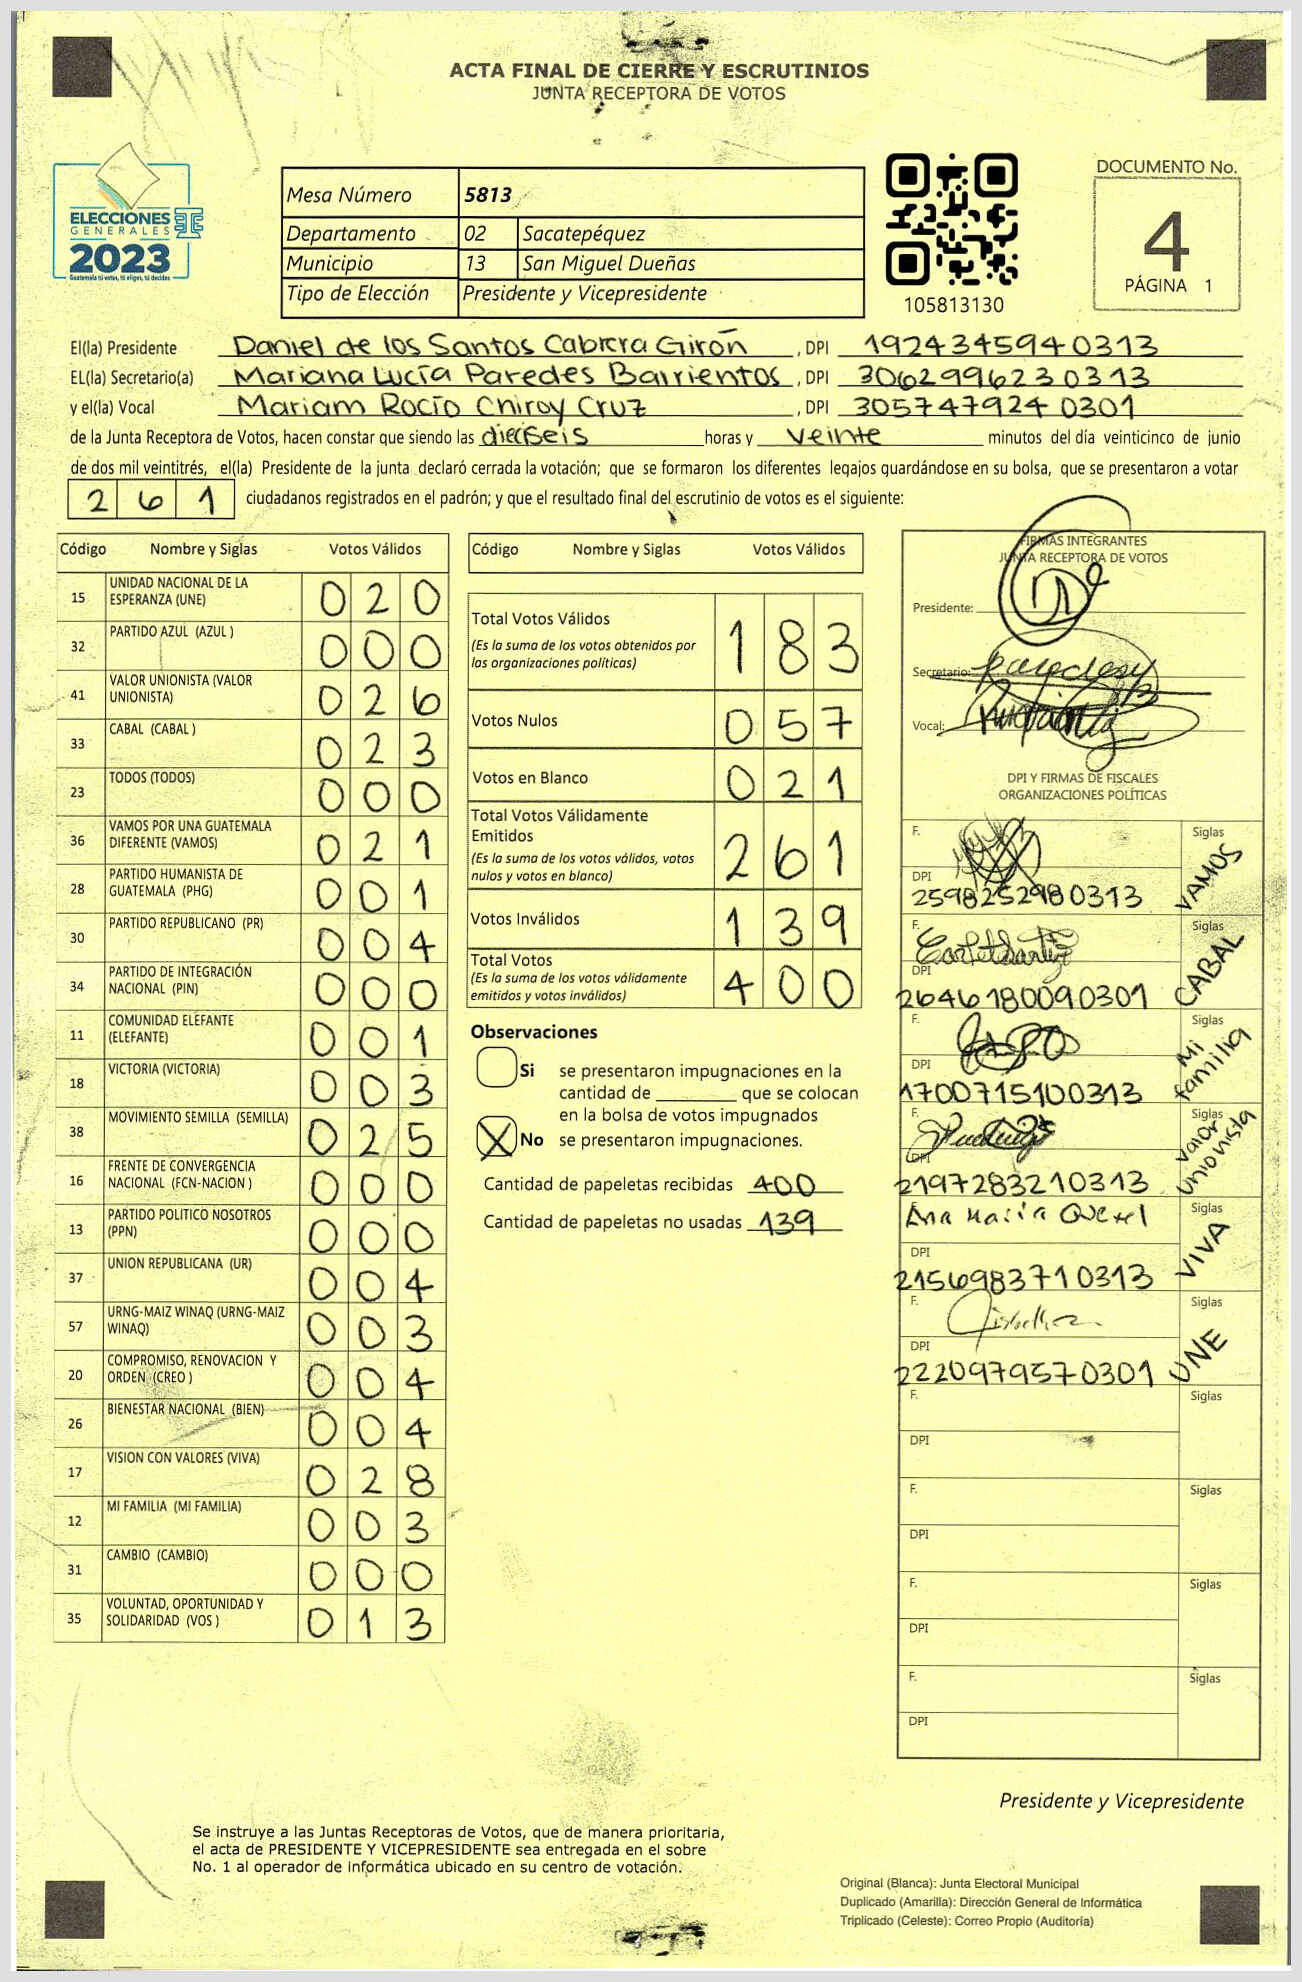 ACTA FINAL DE CIERRE Y ESCRUTINIOS
JUNTA RECEPTORA DE VOTOS
ELECCIONES
GENERALES
2023
Guatemala tú votas, tú eliges, tú decides
Mesa Número 5813
Departamento 02 Sacatepéquez
Municipio 13 San Miguel Dueñas
Tipo de Elección Presidente y Vicepresidente
105813130
DOCUMENTO No.
4
PÁGINA 1
El(la) Presidente Daniel de los Santos Cabrera Girón, DPI 1924345940313
EL(la) Secretario(a) Mariana Lucía Paredes Barrientos, DPI 3062996230313
y el(la) Vocal Mariam Rocío Chiroy Cruz, DPI 3057479240301
de la Junta Receptora de Votos, hacen constar que siendo las dieciseis horas y veinte minutos del día veinticinco de junio
de dos mil veintitrés, el(la) Presidente de la junta declaró cerrada la votación; que se formaron los diferentes legajos guardándose en su bolsa, que se presentaron a votar
261 ciudadanos registrados en el padrón; y que el resultado final del escrutinio de votos es el siguiente:
Código Nombre y Siglas Votos Válidos
15 UNIDAD NACIONAL DE LA ESPERANZA (UNE) 020
32 PARTIDO AZUL (AZUL ) 000
41 VALOR UNIONISTA (VALOR UNIONISTA) 026
33 CABAL (CABAL ) 023
23 TODOS (TODOS) 000
36 VAMOS POR UNA GUATEMALA DIFERENTE (VAMOS) 021
28 PARTIDO HUMANISTA DE GUATEMALA (PHG) 001
30 PARTIDO REPUBLICANO (PR) 004
34 PARTIDO DE INTEGRACIÓN NACIONAL (PIN) 000
11 COMUNIDAD ELEFANTE (ELEFANTE) 001
18 VICTORIA (VICTORIA) 003
38 MOVIMIENTO SEMILLA (SEMILLA) 025
16 FRENTE DE CONVERGENCIA NACIONAL (FCN-NACION ) 000
13 PARTIDO POLITICO NOSOTROS (PPN) 000
37 UNION REPUBLICANA (UR) 004
57 URNG-MAIZ WINAQ (URNG-MAIZ WINAQ) 003
20 COMPROMISO, RENOVACION Y ORDEN (CREO ) 004
26 BIENESTAR NACIONAL (BIEN) 004
17 VISION CON VALORES (VIVA) 028
12 MI FAMILIA (MI FAMILIA) 003
31 CAMBIO (CAMBIO) 000
35 VOLUNTAD, OPORTUNIDAD Y SOLIDARIDAD (VOS ) 013
Código Nombre y Siglas Votos Válidos
Total Votos Válidos 183
(Es la suma de los votos obtenidos por
las organizaciones políticas)
Votos Nulos 057
Votos en Blanco 021
Total Votos Válidamente
Emitidos 261
(Es la suma de los votos válidos, votos
nulos y votos en blanco)
Votos Inválidos 139
Total Votos 400
(Es la suma de los votos válidamente
emitidos y votos inválidos)
Observaciones
Si se presentaron impugnaciones en la
cantidad de ________ que se colocan
en la bolsa de votos impugnados
X No se presentaron impugnaciones.
Cantidad de papeletas recibidas 400
Cantidad de papeletas no usadas 139
FIRMAS INTEGRANTES
JUNTA RECEPTORA DE VOTOS
Presidente:
Secretario:
Vocal:
DPI Y FIRMAS DE FISCALES
ORGANIZACIONES POLÍTICAS
F. Siglas VAMOS
DPI 2598252980313
F. Siglas CABAL
DPI 2646180090301
F. Siglas Mi familia
DPI 1700715100313
F. Siglas Valor Unionista
DPI 2197283210313
Ana Maria Siglas VIVA
DPI 2156983710313
F. Siglas UNE
DPI 2220979570301
F. Siglas
DPI
F. Siglas
DPI
F. Siglas
DPI
F. Siglas
DPI
Presidente y Vicepresidente
Se instruye a las Juntas Receptoras de Votos, que de manera prioritaria,
el acta de PRESIDENTE Y VICEPRESIDENTE sea entregada en el sobre
No. 1 al operador de informática ubicado en su centro de votación.
Original (Blanca): Junta Electoral Municipal
Duplicado (Amarilla): Dirección General de Informática
Triplicado (Celeste): Correo Propio (Auditoría)